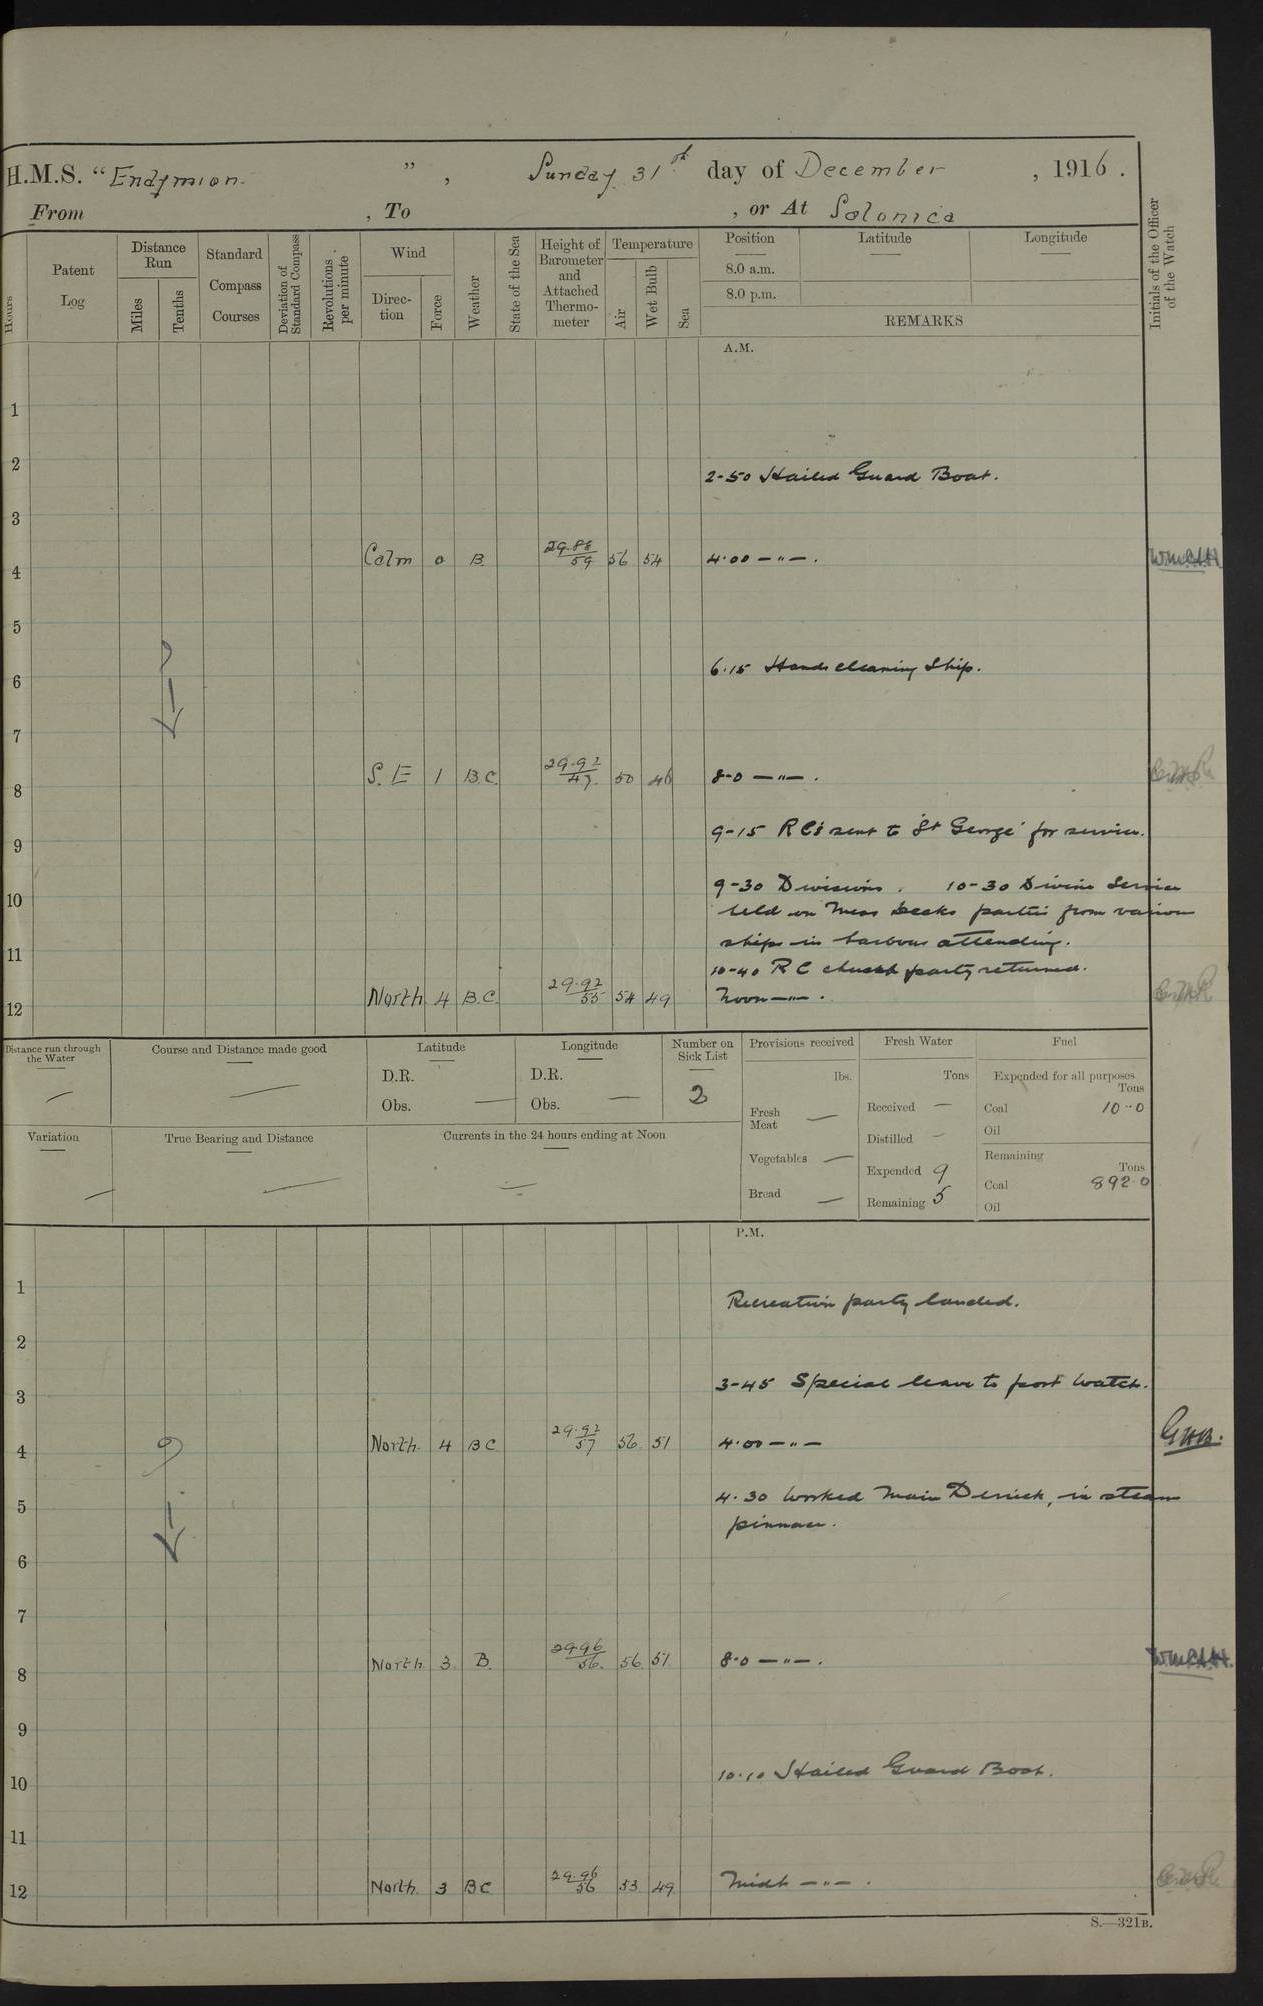 H.M.S. "Endymion. ", Sunday 31th day of December, 1916.
From , To , or At Salonica
Hours
Patent Log
Distance Run
Miles
Tenths
Standard Compass Courses
Deviation of Standard Compass
Revolutions per minute
Wind
Direction
Force
Weather
State of the Sea
Height of Barometer and Attached Thermometer
Temperature
Air
Wet Bulb
Sea
Position
Latitude
Longitude
8.0 a.m.
8.0 p.m.
REMARKS
Initials of the Officer of the Watch
A.M.
1
2
2-50 Hailed Guard Boat.
3
4 Calm 0 B 29.88/59 56 54 4.00 —"—.
5
6 6.15 Hands cleaning Ship.
7
8 S.E 1 B.C 29.92/47 50 46 8-0 —"—.
9 9-15 RC's sent to 'St George' for service.
10 9-30 Divisions. 10-30 Divine Service
held on Mess Decks parties from various
11 ships in harbour attending.
10-40 RC church party returned.
12 North 4 B.C. 29.92/55 54 49 Noon —"—.
Distance run through the Water
—
Course and Distance made good
—
Latitude
D.R.
Obs. —
Longitude
D.R.
Obs. —
Number on Sick List
2
Provisions received
lbs.
Fresh Meat —
Vegetables —
Bread —
Fresh Water
Tons
Received —
Distilled —
Expended 9
Remaining 5
Fuel
Expended for all purposes
Tons
Coal 10-0
Oil
Remaining
Tons
Coal 892.0
Oil
Variation
—
True Bearing and Distance
—
Currents in the 24 hours ending at Noon
—
P.M.
1 Recreation party landed.
2
3 3-45 Special leave to port watch.
4 North 4 BC 29.92/57 56 51 4.00 —"— GHB.
5 4.30 Worked Main Derrick, in steam
pinnace.
6
7
8 North 3 B. 29.96/56 56 51 8.0 —"—.
9
10 10.10 Hailed Guard Boat.
11
12 North 3 BC 29.96/56 53 49 Midt —"—.
S.—321B.